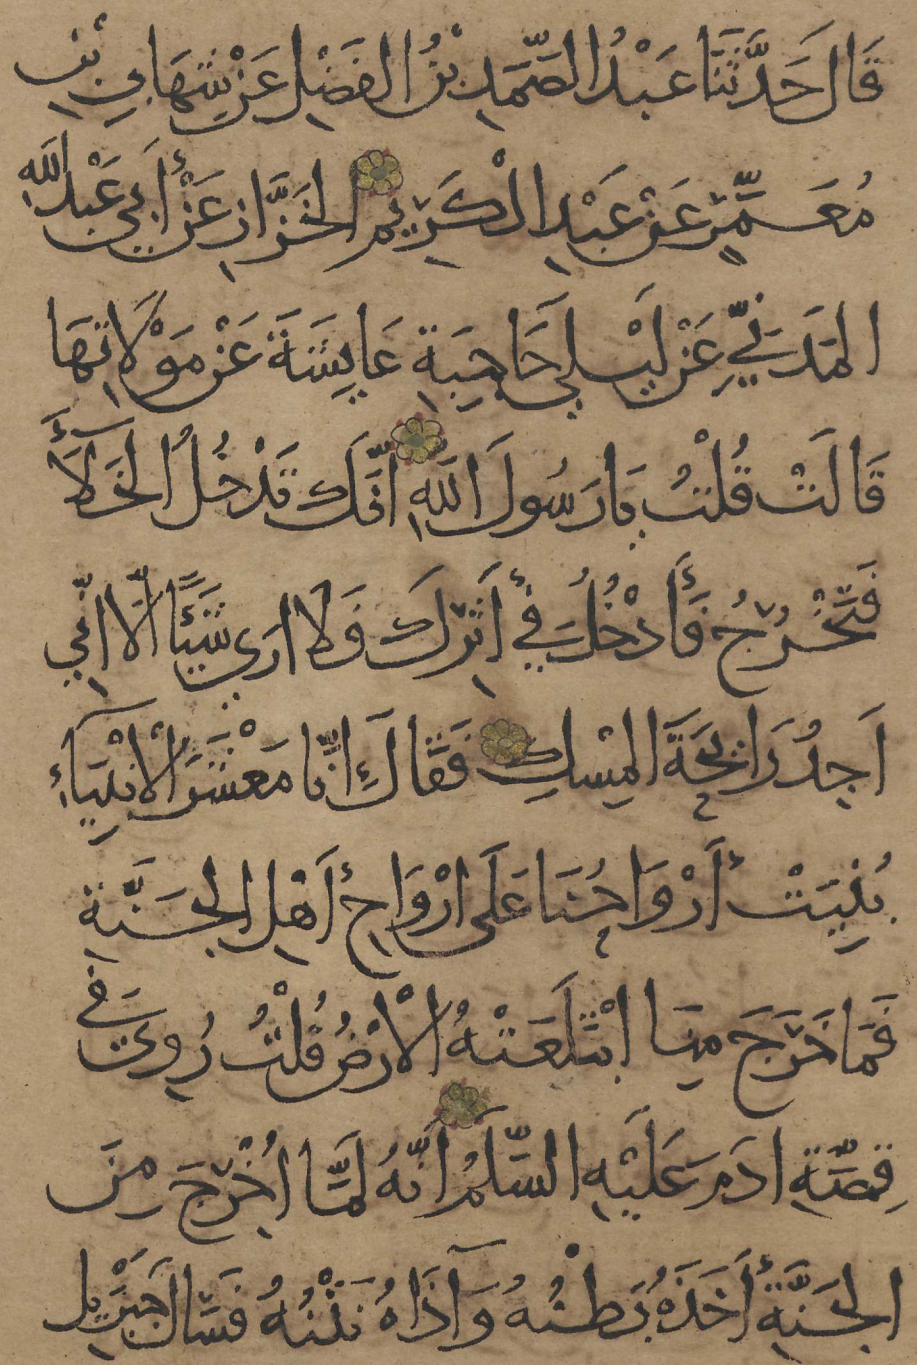 قَالَ حَدَّثَنَا عَبْدُ الصَّمَدِ بْنُ الفَضْلِ عَنْ شِهَابِ بْنِ
مُعَمَّرٍ عَنْ عَبْدِ الْكَرِيمِ الخَزَّازِ عَنْ أَبِي عَبْدِ اللَّهِ
المَدَنِيِّ عَنْ لَيْلَى حَاجِبَةِ عَايِشَةَ عَنْ مَوْلَاتِهَا
قَالَتْ قُلْتُ يَا رَسُولَ اللَّهِ انَّكَ تَدْخُلُ الخَلَآءَ
فَتَخْرُجُ فَأَدْخُلُ فِي أَثَرِكَ فَلَا ارَى شَيْئًا الَّا انِّي
اَجِدُ رَايِحَةَ المِسْكِ فَقَالَ اِنَّا مَعْشَرَ الْاَنْبِيَآءِ
بُنِيَتْ أَرْوَاحُنَا عَلَى ارْوَاحِ أَهْلِ الجَنَّةِ
فَمَا خَرَجَ مِنَّا ابْتَلَعَتْهُ الْاَرْضُ قُلْتُ رُوِيَ فِي
قِصَّةِ ادَمَ عَلَيْهِ السَّلَمُ اَنَّهُ لَمَّا اُخْرِجَ مِنَ
الجَنَّةِ أَخَذَهُ بَطْنُهُ وَآذَاهُ نَتْنُهُ فَسَاَلَ جَبْرَيِل